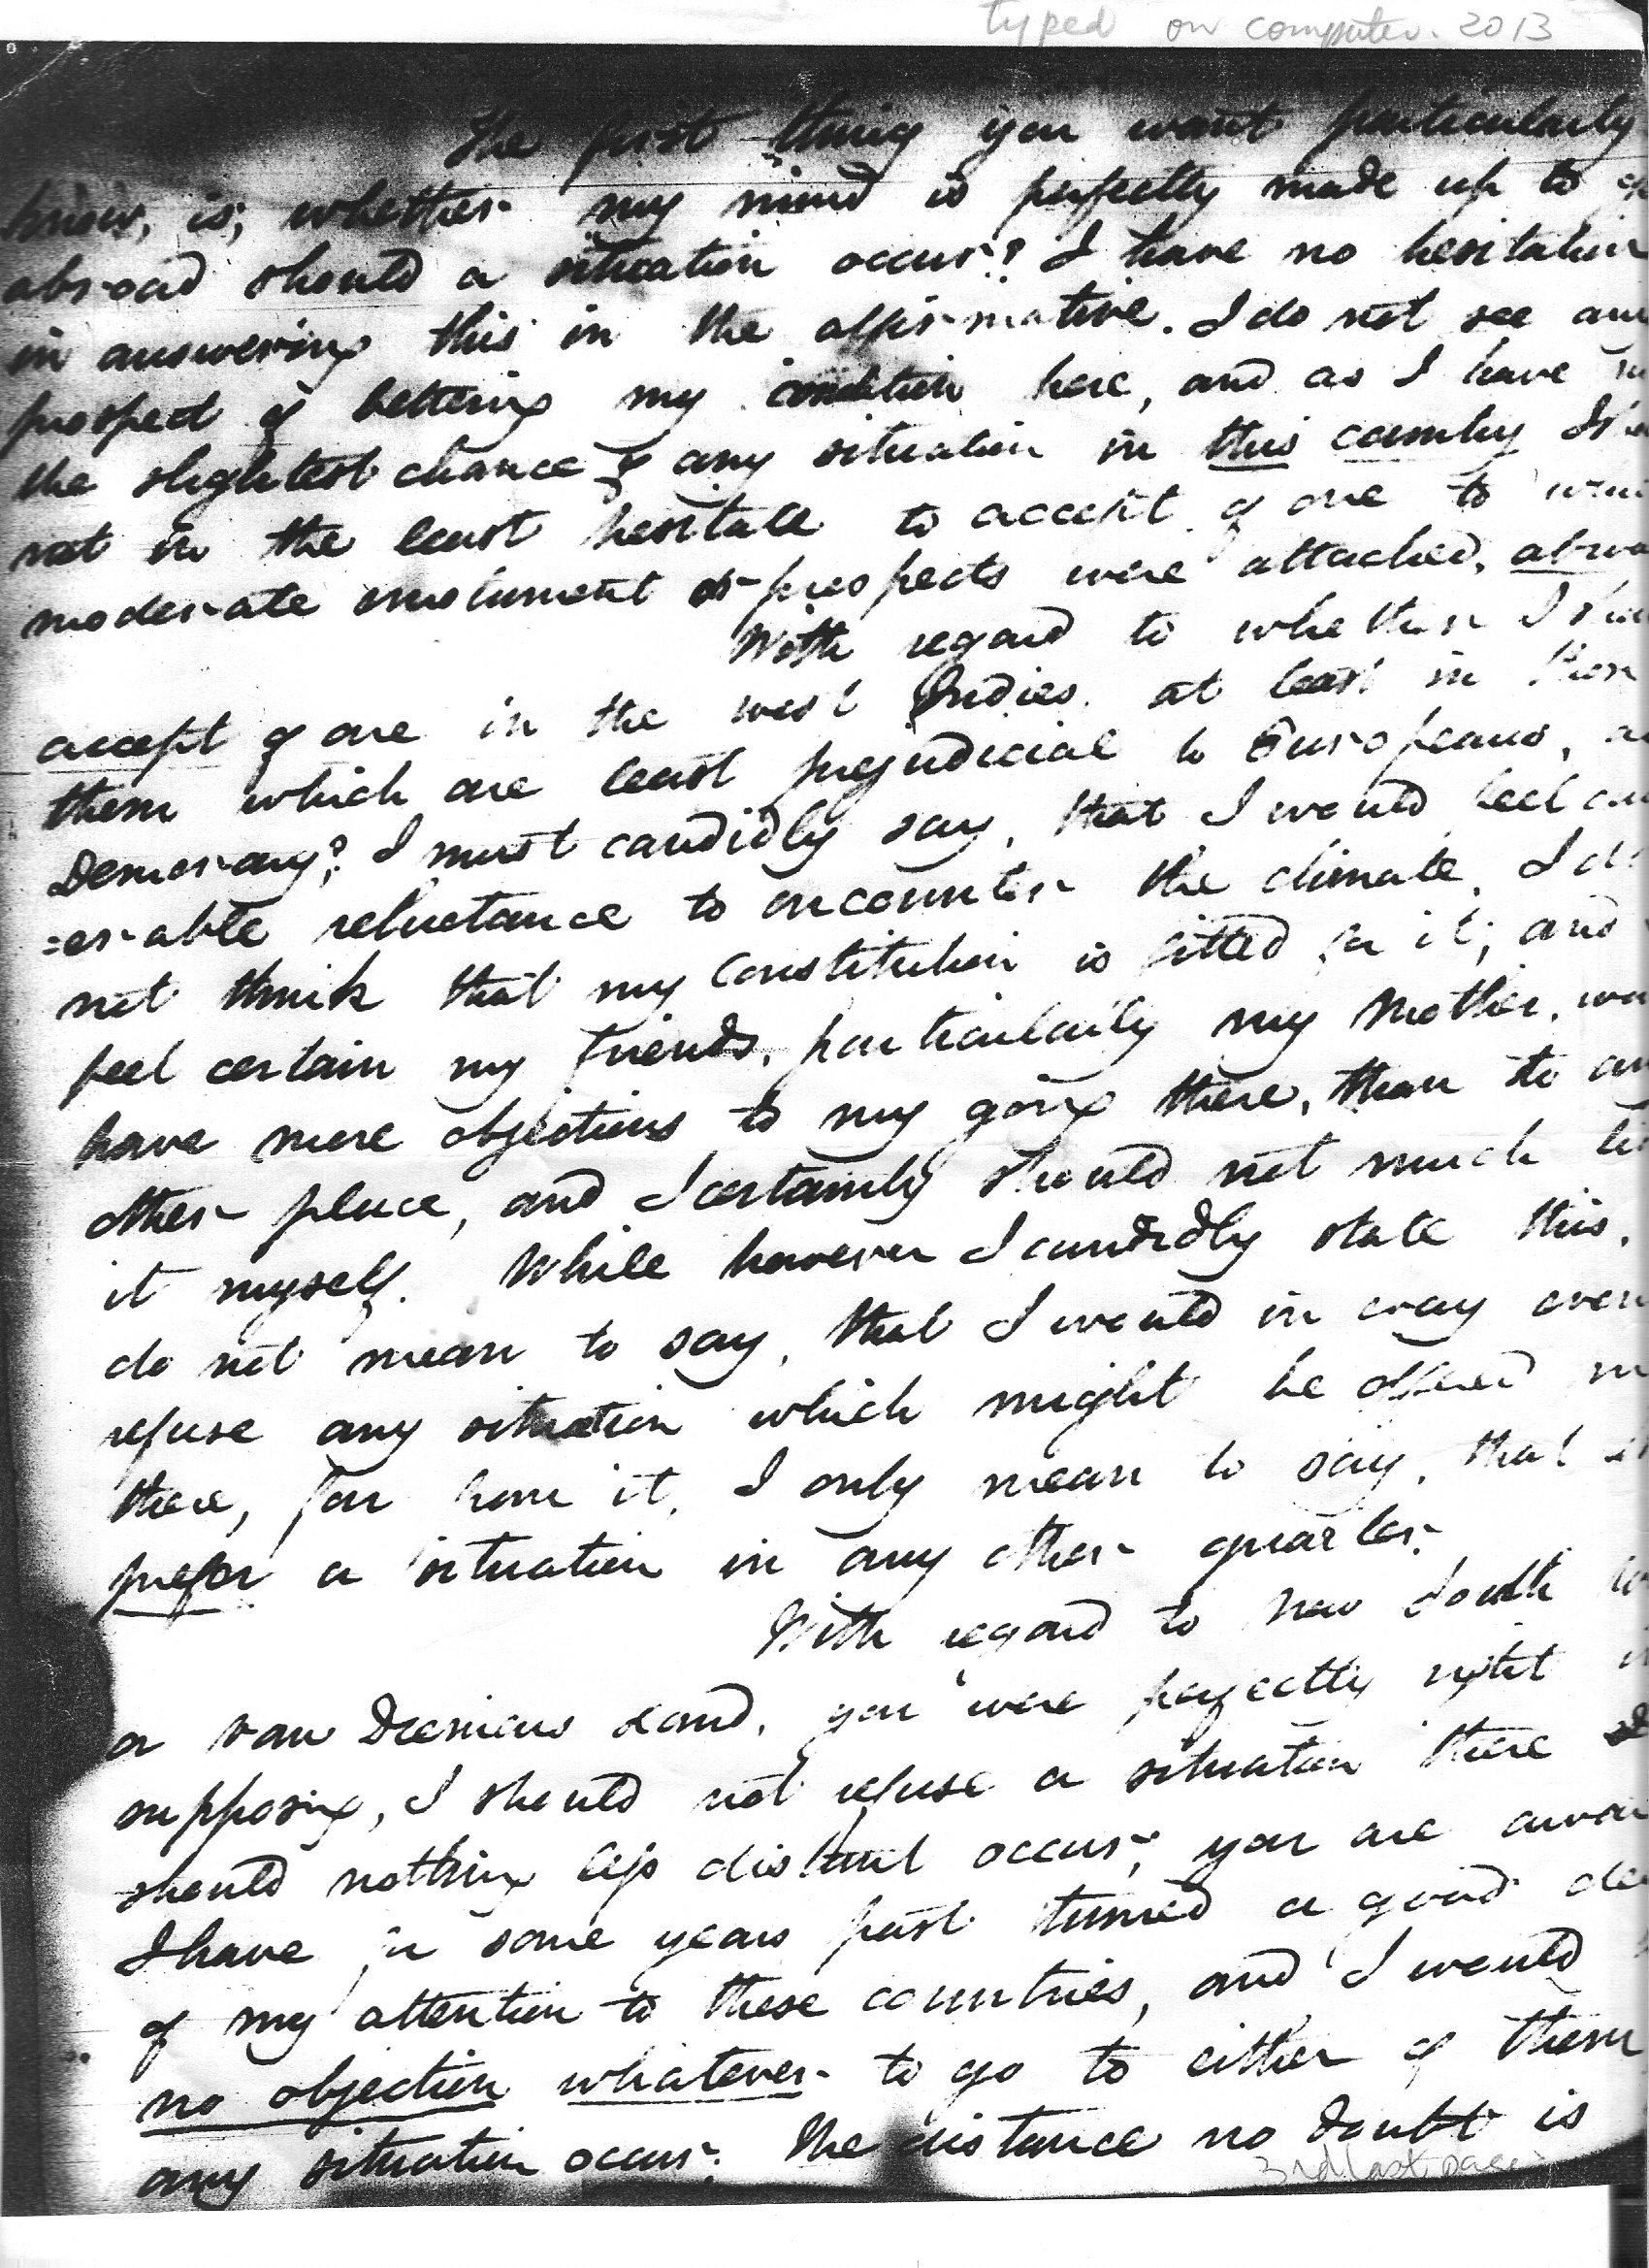 typed on computer. 2013
The first thing you want particularly
know, is, whether my mind is perfectly made up to
abroad should a situation occur? I have no hesitation
in answering this in the affirmative. I do not see
prospect of bettering my condition here, and as I have
the slightest chance of any situation in this country
not in the least hesitate to accept of one to
moderate emolument or prospects were attached,
With regard to whether I
accept of one in the west Indies. at least in
them which are least prejudicial to Europeans,
Demerary? I must candidly say, that I would feel
=erable reluctance to encounter the climate, I
not think that my Constitution is fitted for it, and
feel certain my friends, particularly my Mother,
have more objections to my going there, than to
other place, and I certainly should not much
it myself. While however I candidly state this,
do not mean to say, that I would in every
refuse any situation which might be offered
there, far from it, I only mean to say, that
prefer a situation in any other quarter.
With regard to New South
or Van Diemens Land, you were perfectly right
supposing, I should not refuse a situation there
should nothing less distant occur, you are
I have for some years past turned a good
of my attention to these countries, and I would
no objection whatever to go to either of them
any situation occur. The distance no doubt is
3rd last page